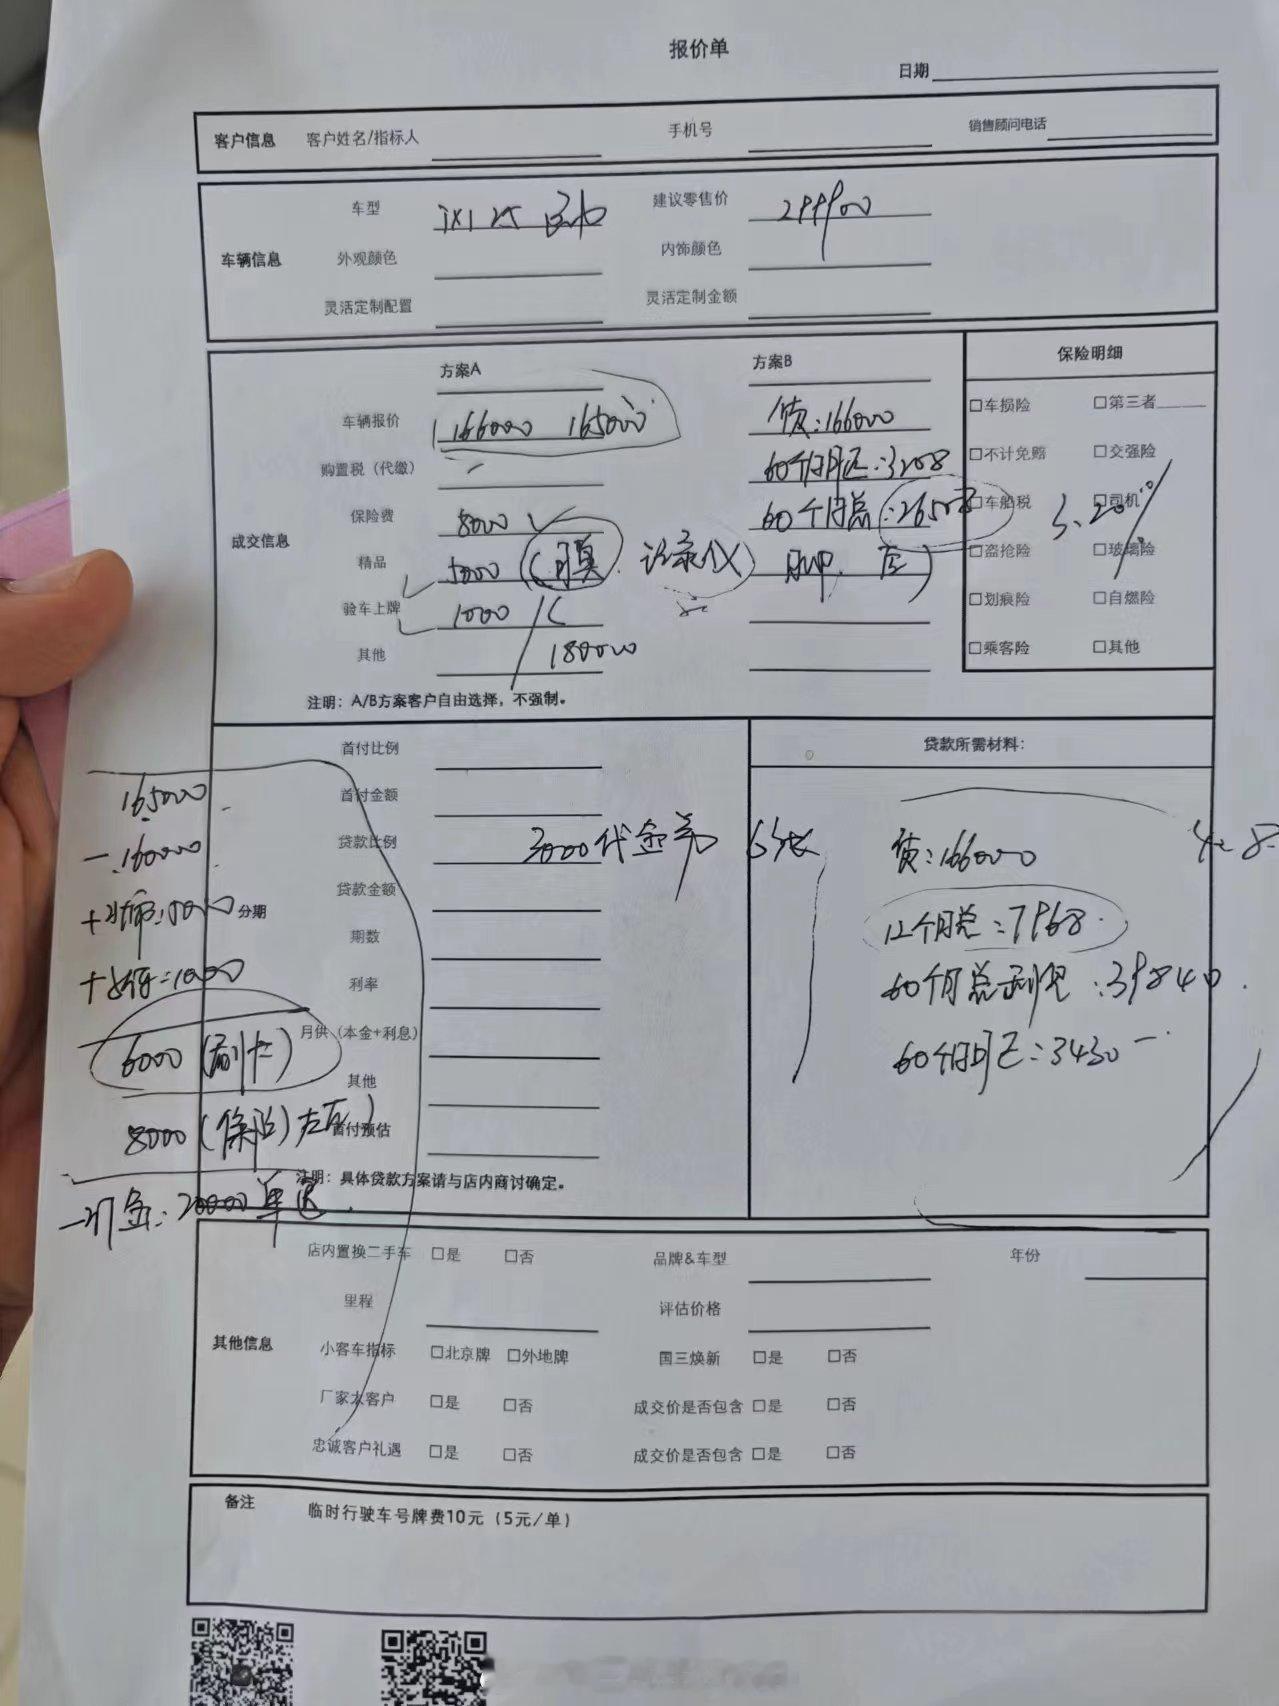 报价单
日期
客户信息 客户姓名/指标人 手机号 销售顾问电话
车型 iX1 25 建议零售价 299900
车辆信息 外观颜色 内饰颜色
灵活定制配置 灵活定制金额
方案A 方案B 保险明细
车辆报价 166000 165000 贷:166000 □车损险 □第三者
购置税（代缴） 60个月月还:3208 □不计免赔 □交强险
成交信息 保险费 8000 60个月总: □车船税 □司机
精品 5000 (膜. 记录仪 脚 ) □盗抢险 □玻璃险
验车上牌 1000 □划痕险 □自燃险
其他 180000 □乘客险 □其他
注明：A/B方案客户自由选择，不强制。
首付比例 贷款所需材料：
165000 首付金额
-160000 贷款比例 3000代金券 6张 贷:166000
贷款金额
分期 12个月总:7968
期数
利率 60个月总利息:39840
6000(刷卡) 月供（本金+利息） 60个月月还:3430
其他
8000(保险)左右 首付预估
注明：具体贷款方案请与店内商讨确定。
订金:20000单退
店内置换二手车 □是 □否 品牌&车型 年份
里程 评估价格
其他信息 小客车指标 □北京牌 □外地牌 国三焕新 □是 □否
厂家大客户 □是 □否 成交价是否包含 □是 □否
忠诚客户礼遇 □是 □否 成交价是否包含 □是 □否
备注 临时行驶车号牌费10元（5元/单）